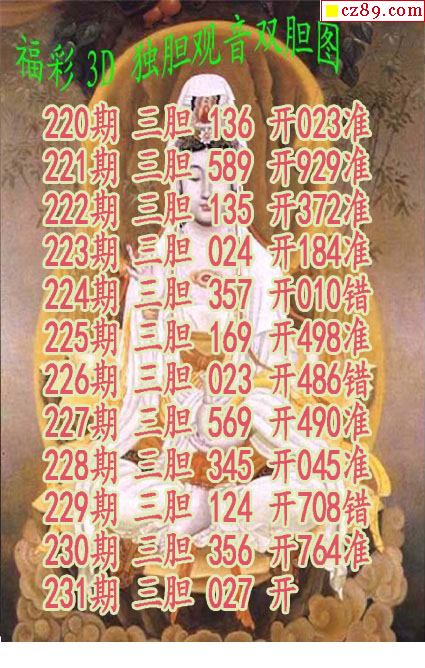 cz89.com
福彩 3D 独胆观音双胆图
220期 三胆 136 开023准
221期 三胆 589 开929准
222期 三胆 135 开372准
223期 三胆 024 开184准
224期 三胆 357 开010错
225期 三胆 169 开498准
226期 三胆 023 开486错
227期 三胆 569 开490准
228期 三胆 345 开045准
229期 三胆 124 开708错
230期 三胆 356 开764准
231期 三胆 027 开